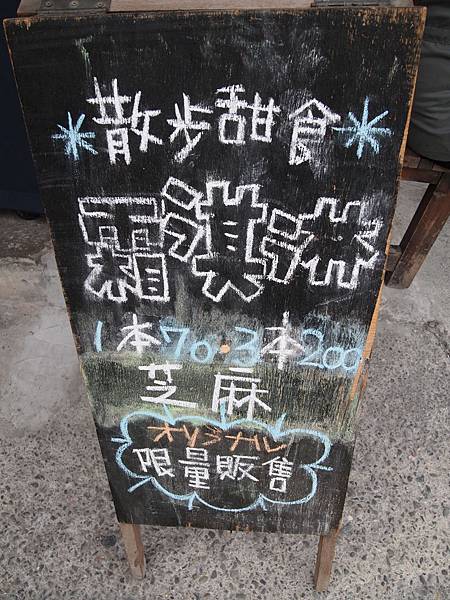 *散步甜食*
霜淇淋
1本70・3本200
芝麻
オリジナル
限量販售